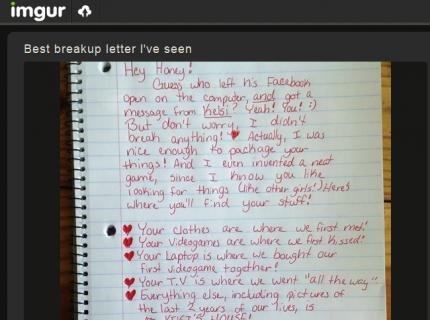 imgur
Best breakup letter I've seen
Hey Honey!
Guess who left his Facebook
open on the computer, and got a
message from Kelsi? Yeah! You! :)
But don't worry, I didn't
break anything! Actually, I was
nice enough to package your
things! And I even invented a neat
game, since I know you like
looking for things (like other girls!) Here's
where you'll find your stuff!
Your clothes are where we first met!
Your Videogames are where we first kissed!
Your Laptop is where we bought our
first videogame together!
Your T.V is where we went "all the way"
Everything else, including pictures of
the last 2 years of our lives, is
HOUSE!